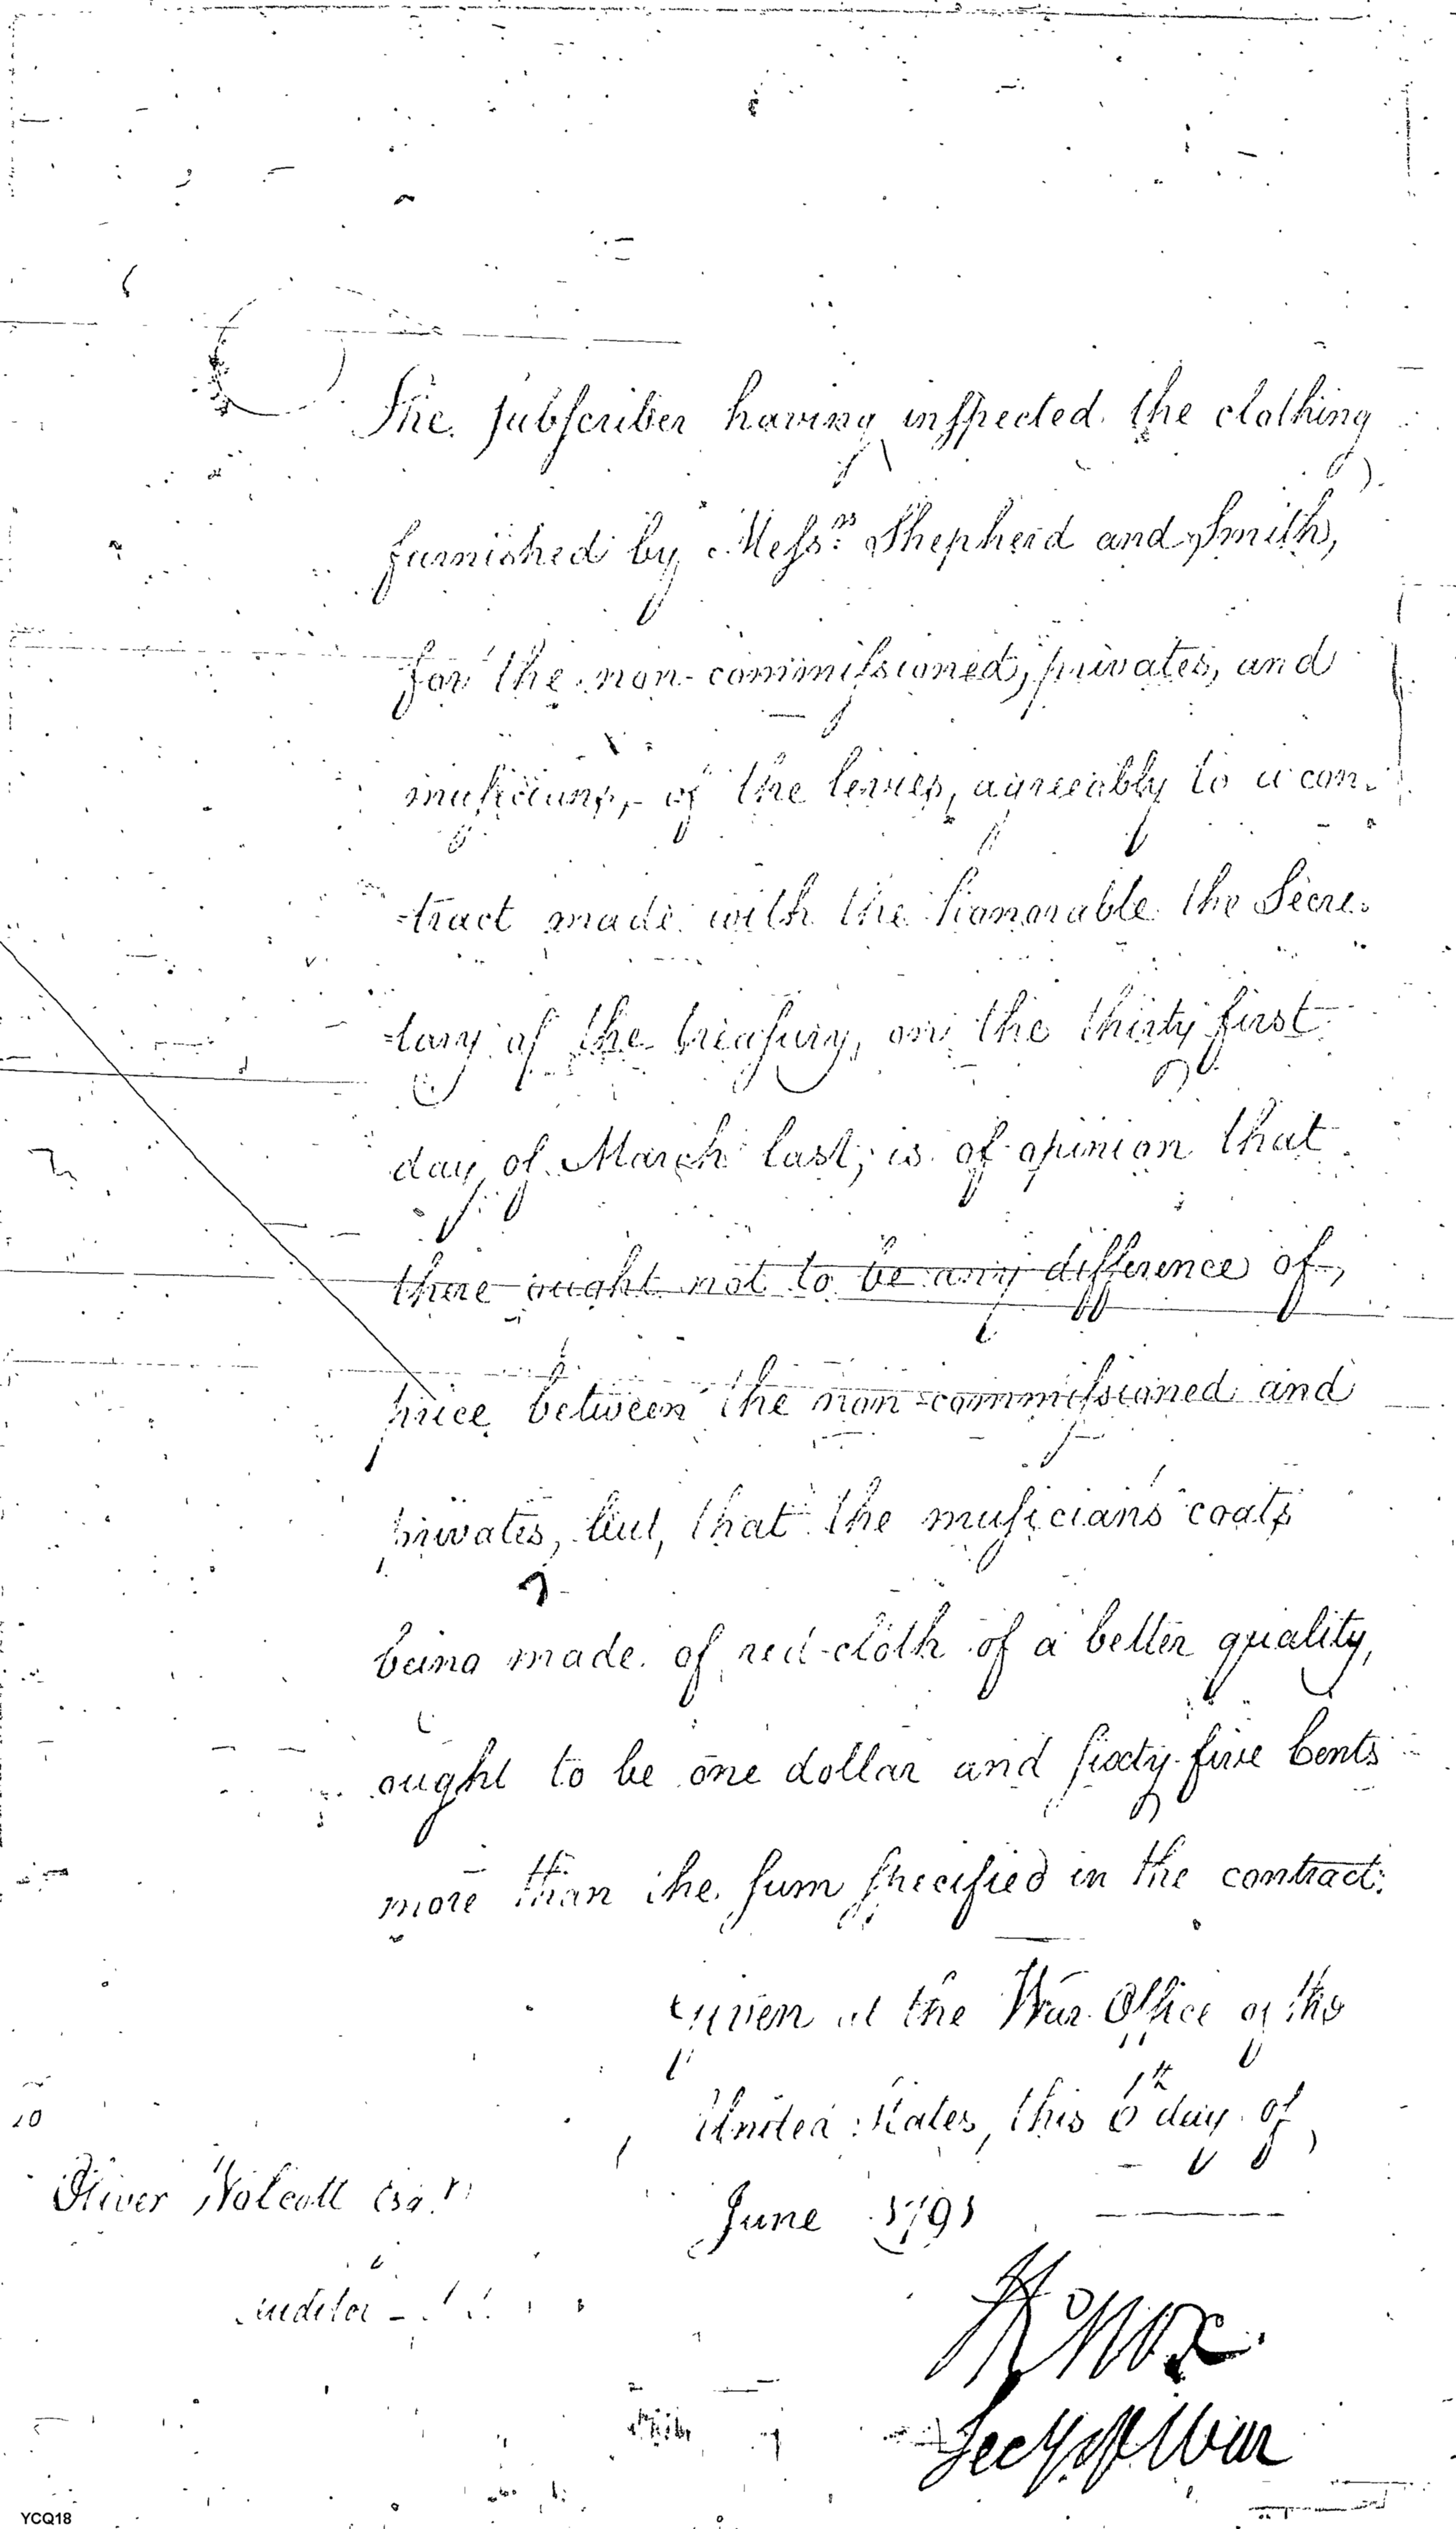 The subscriber having inspected the clothing
furnished by Messrs. Shepherd and Smith,
for the non-commissioned, privates, and
musicians, of the levies, agreeably to a con-
-tract made with the honorable the Secre-
-tary of the treasury, on the thirty first
day of March last, is of opinion that
there ought not to be any difference of
price between the non-commissioned and
privates, but, that the musicians coats
being made of red-cloth of a better quality,
ought to be one dollar and sixty-five Cents
more than the sum specified in the contract.
Given at the War Office of the
United States, this 6th day of
June 1791
10
Oliver Wolcott Esqr.
Auditor
HKnox
Secy of War
YCQ18